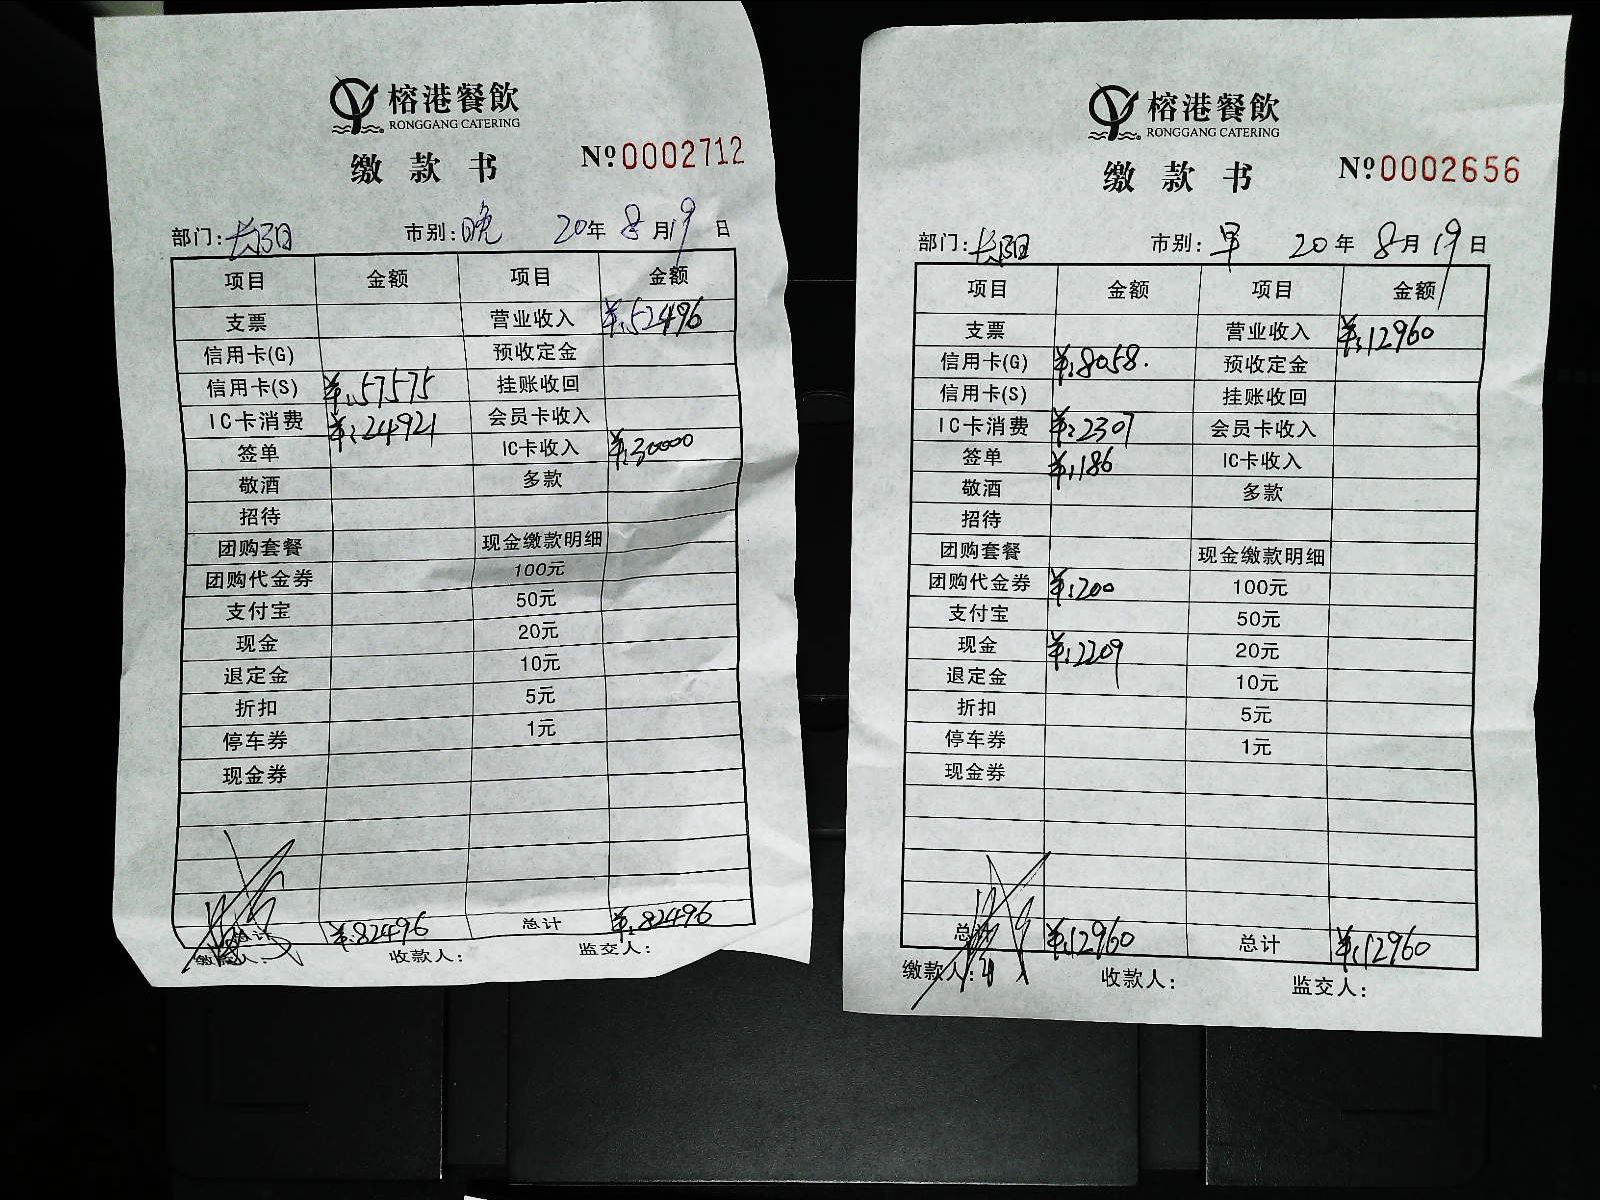 榕港餐飲
RONGGANG CATERING
缴款书 Nº0002712
部门: 市别:晚 20年8月19日
项目 金额 项目 金额
支票 营业收入 ¥:52496
信用卡(G) 预收定金
信用卡(S) ¥:57575 挂账收回
IC卡消费 ¥:24921 会员卡收入
签单 IC卡收入 ¥:30000
敬酒 多款
招待
团购套餐 现金缴款明细
团购代金券 100元
支付宝 50元
现金 20元
退定金 10元
折扣 5元
停车券 1元
现金券
总计 ¥:82496 总计 ¥:82496
缴款人: 收款人: 监交人:
榕港餐飲
RONGGANG CATERING
缴款书 Nº0002656
部门: 市别:早 20年8月19日
项目 金额 项目 金额
支票 营业收入 ¥:12960
信用卡(G) ¥:8058. 预收定金
信用卡(S) 挂账收回
IC卡消费 ¥:2307 会员卡收入
签单 ¥:186 IC卡收入
敬酒 多款
招待
团购套餐 现金缴款明细
团购代金券 ¥:200 100元
支付宝 50元
现金 ¥:2209 20元
退定金 10元
折扣 5元
停车券 1元
现金券
总计 ¥:12960 总计 ¥:12960
缴款人: 收款人: 监交人: